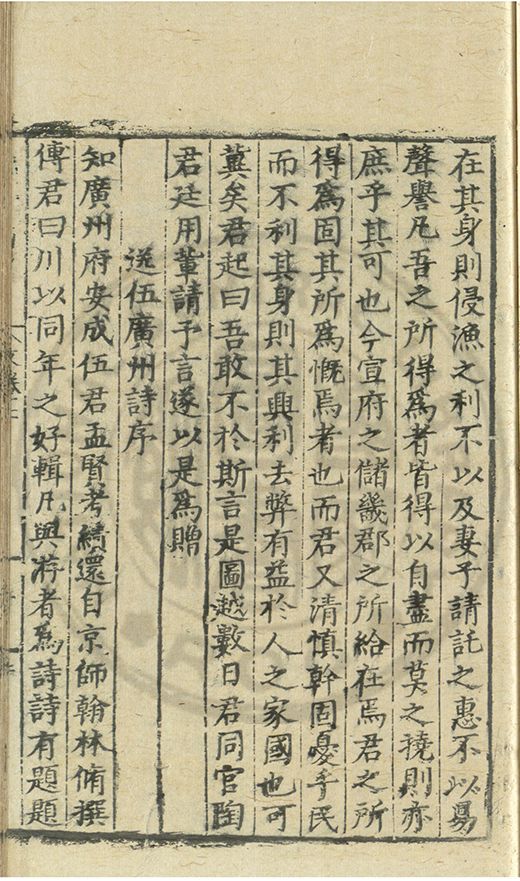 在其身則侵漁之利不以及妻子請託之惠不以昜
聲譽凡吾之所得為者皆得以自盡而莫之撓則亦
庶乎其可也今宣府之儲畿郡之所給在焉君之所
得為固其所為慨焉者也而君又清慎幹固憂乎民
而不利其身則其興利去弊有益於人之家國也可
冀矣君起曰吾敢不於斯言是圖越數日君同官陶
君廷用軰請予言遂以是為贈
送伍廣州詩序
知廣州府安成伍君孟賢考績還自京師翰林脩撰
傅君曰川以同年之好輯凡與游者為詩詩有題題